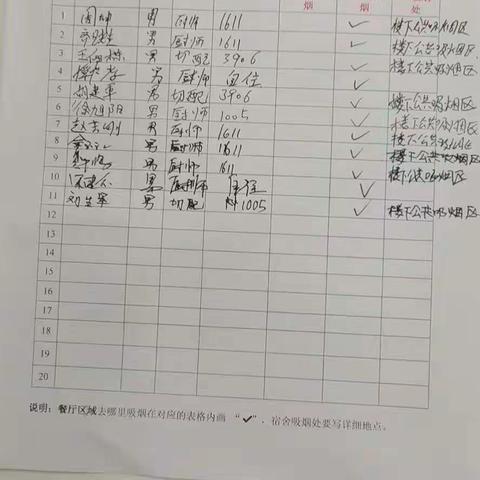 烟 烟 处
1 周坤 男 厨师 1611 ✓ 楼下公共吸烟区
2 男 厨师 1611 ✓ 楼下公共吸烟区
3 男 切配 3906 ✓ 楼下公共吸烟区
4 男 厨师 自住 ✓
5 男 切配 3906 ✓ 楼下公共吸烟区
6 徐旭阳 男 厨师 1005 ✓ 楼下公共吸烟区
7 赵志刚 男 厨师 1611 ✓ 楼下公共吸烟区
8 男 厨师 1611 ✓ 楼下公共吸烟区
9 男 厨师 1611 ✓ 楼下公共吸烟区
10 男 厨师 ✓
11 刘兰军 男 切配 1005 ✓ 楼下公共吸烟区
12
13
14
15
16
17
18
19
20
说明：餐厅区域去哪里吸烟在对应的表格内画 “✓”，宿舍吸烟处要写详细地点。